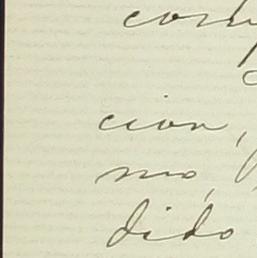 com
cion,
mo,
dido